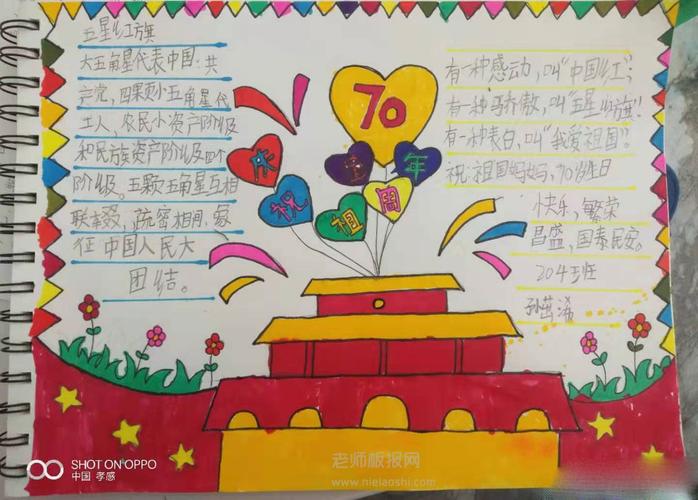 五星红旗
大五角星代表中国:共
产党,四颗小五角星代
工人,农民小资产阶级
和民族资产阶级四个
阶级。五颗五角星互相
联缀,疏密相间,象
征中国人民大
团结。
70
庆 国 年
祝 祖 周
有一种感动,叫"中国红";
有一种骄傲,叫"五星红旗"!
有一种表白,叫"我爱祖国"。
祝:祖国妈妈,70岁生日
快乐,繁荣
昌盛,国泰民安。
204班
孙
SHOT ON OPPO
中国 孝感
老师板报网
www.nielaoshi.com